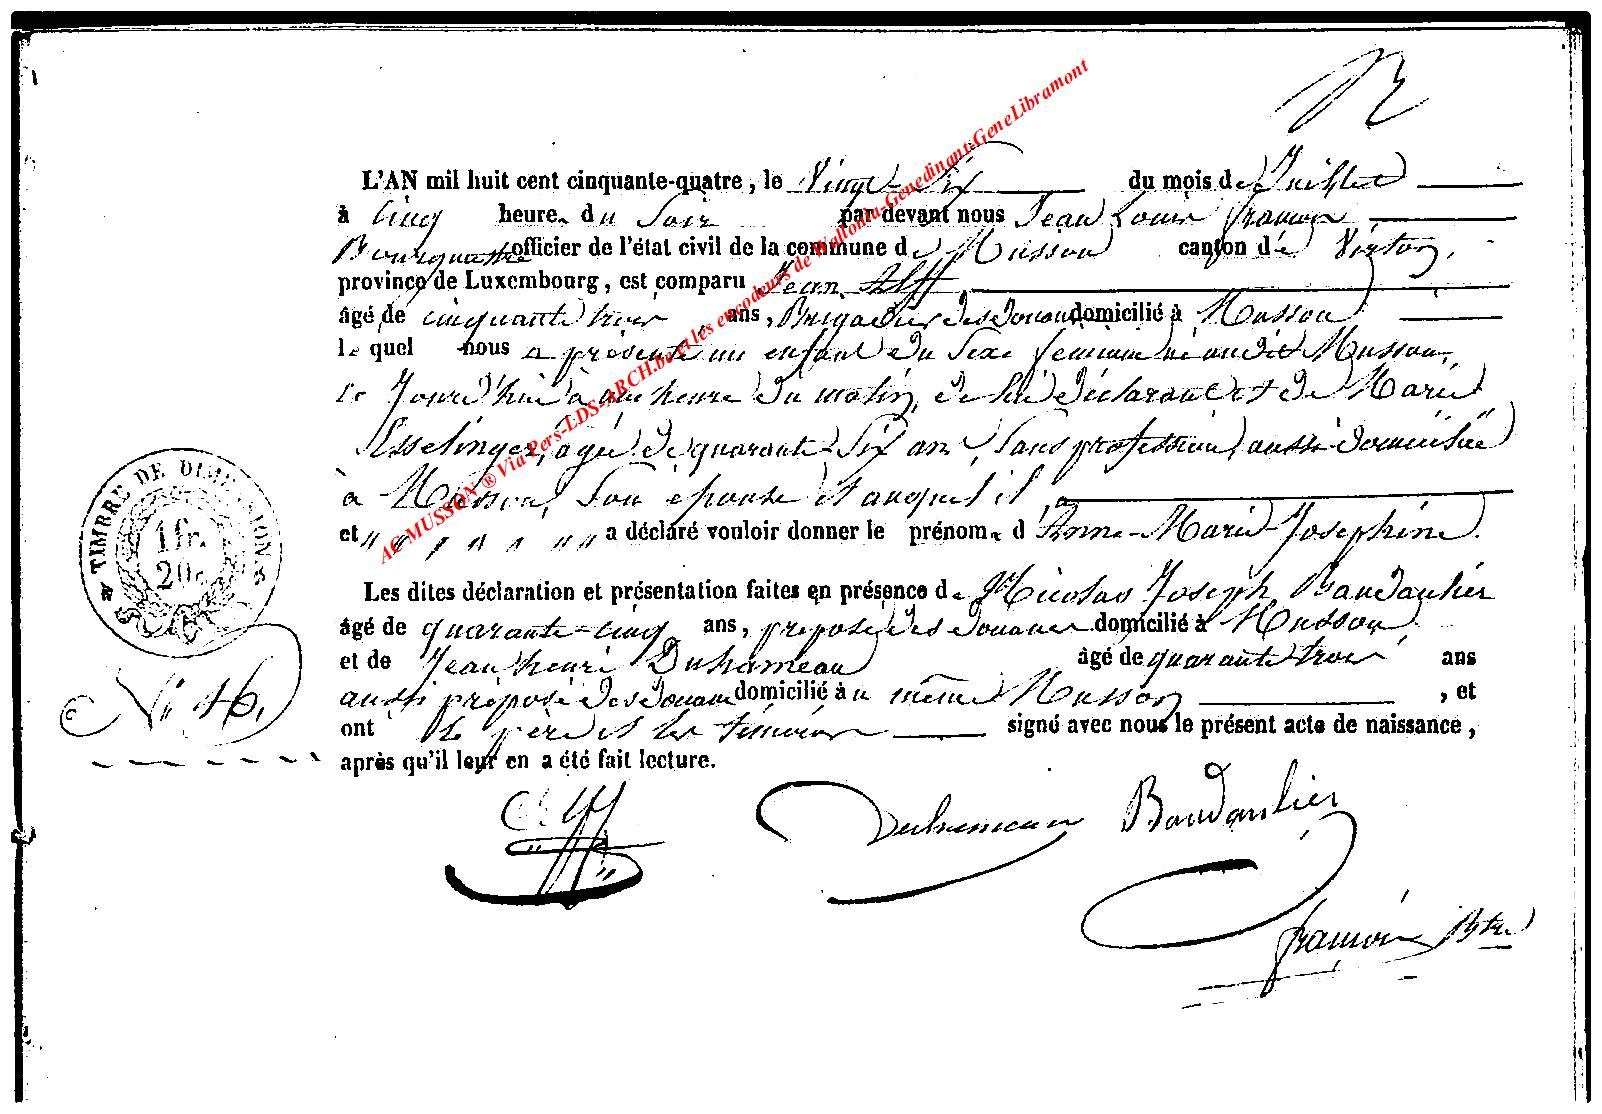 L'AN mil huit cent cinquante-quatre, le Vingt-Six du mois de Juillet
à Cinq heure du Soir par devant nous Jean Louis
Bourgmestre officier de l'état civil de la commune de Musson canton de Virton,
province de Luxembourg, est comparu Jean
âgé de cinquante trois ans, Brigadier des douanes domicilié à Musson
le quel nous a présenté un enfant du Sexe féminin né audit Musson,
ce Jourd'hui à une heure du matin, de lui déclarant et de Marie
Esselinger, agée de quarante-Six ans, Sans profession, aussi domiciliée
à Musson, Son épouse et auquel il a
et a déclaré vouloir donner le prénom d Anne-Marie-Joséphine.
Les dites déclaration et présentation faites en présence de Nicolas Joseph Baudaulier
âgé de quarante-cinq ans, préposé des douanes domicilié à Musson,
et de Jean henri Duhameau âgé de quarante trois ans
aussi préposé des douanes domicilié à u même Musson, et
ont le père et les témoins signé avec nous le présent acte de naissance,
après qu'il leur en a été fait lecture.
TIMBRE DE DIMENSION
1 fr.
20c
N° 46,
Duhameau Baudaulier
Btre
AC MUSSON ® Via Pers-LDS-ARCH.be et les encodeurs de Wallonia-Genedinant-GeneLibramont